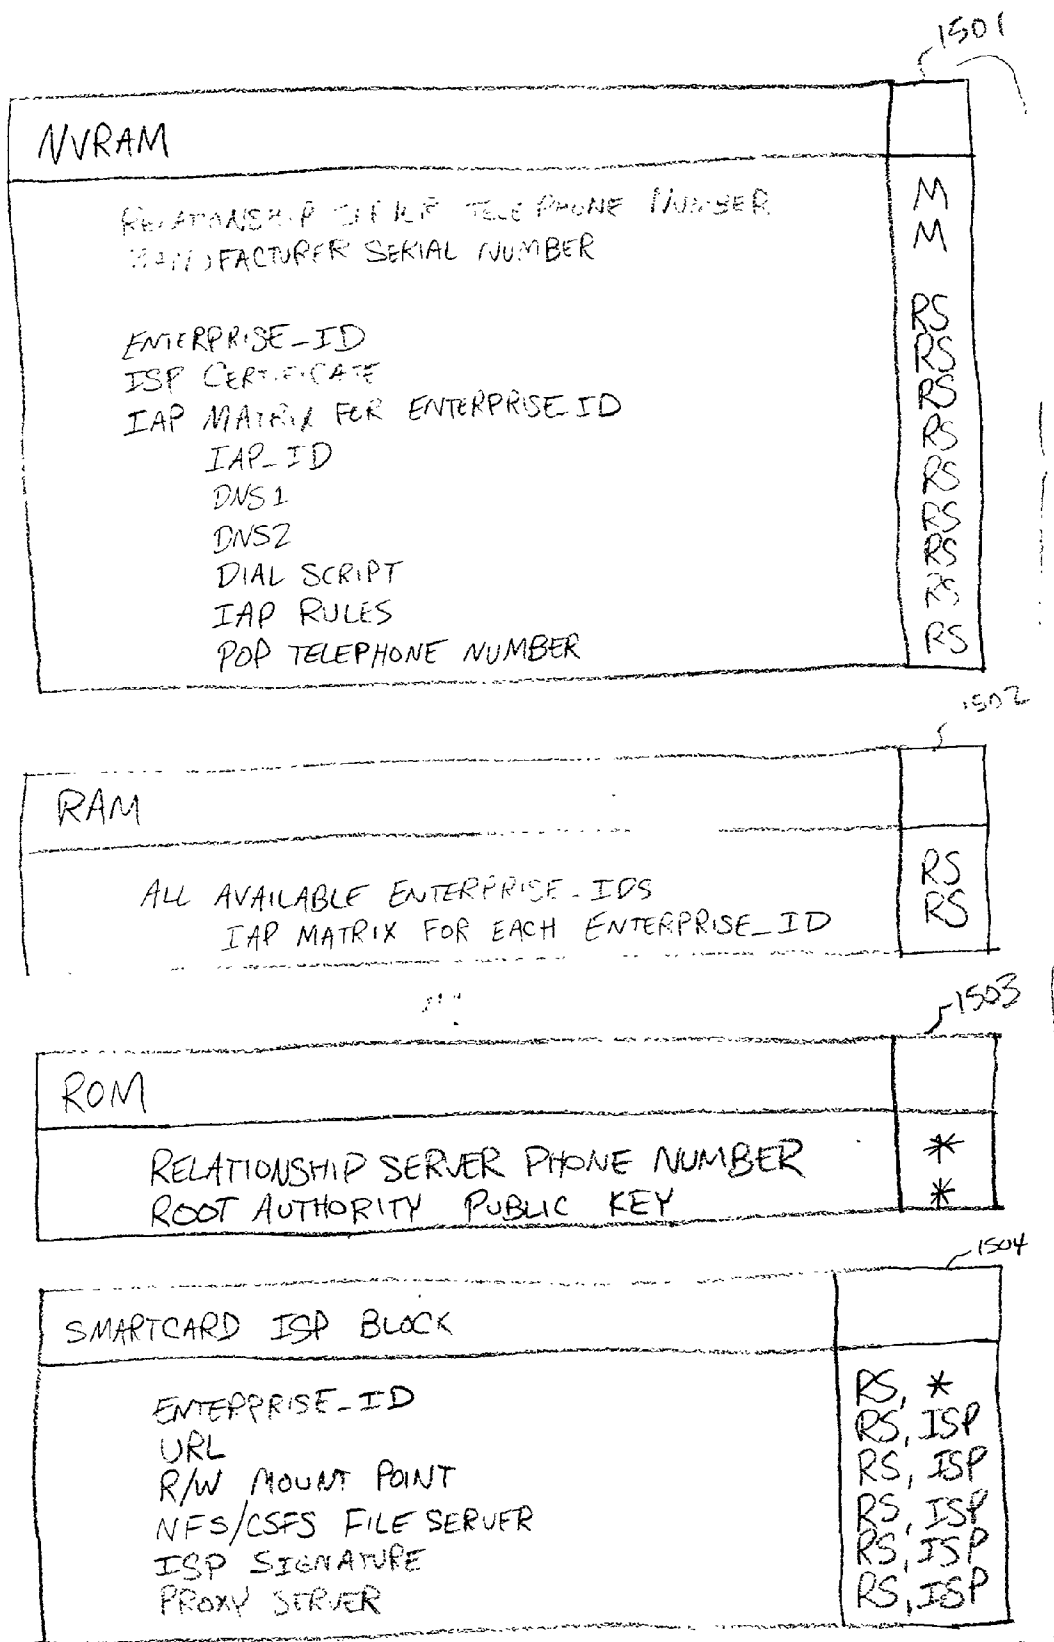 1501
NVRAM
RELATIONSHIP SERVER TELEPHONE NUMBER M
MANUFACTURER SERIAL NUMBER M
ENTERPRISE_ID RS
ISP CERTIFICATE RS
IAP MATRIX FOR ENTERPRISE_ID RS
IAP_ID RS
DNS1 RS
DNS2 RS
DIAL SCRIPT RS
IAP RULES RS
POP TELEPHONE NUMBER RS
1502
RAM
ALL AVAILABLE ENTERPRISE_IDS RS
IAP MATRIX FOR EACH ENTERPRISE_ID RS
1503
ROM
RELATIONSHIP SERVER PHONE NUMBER *
ROOT AUTHORITY PUBLIC KEY *
1504
SMARTCARD ISP BLOCK
ENTERPRISE_ID RS, *
URL RS, ISP
R/W MOUNT POINT RS, ISP
NFS/CSFS FILE SERVER RS, ISP
ISP SIGNATURE RS, ISP
PROXY SERVER RS, ISP